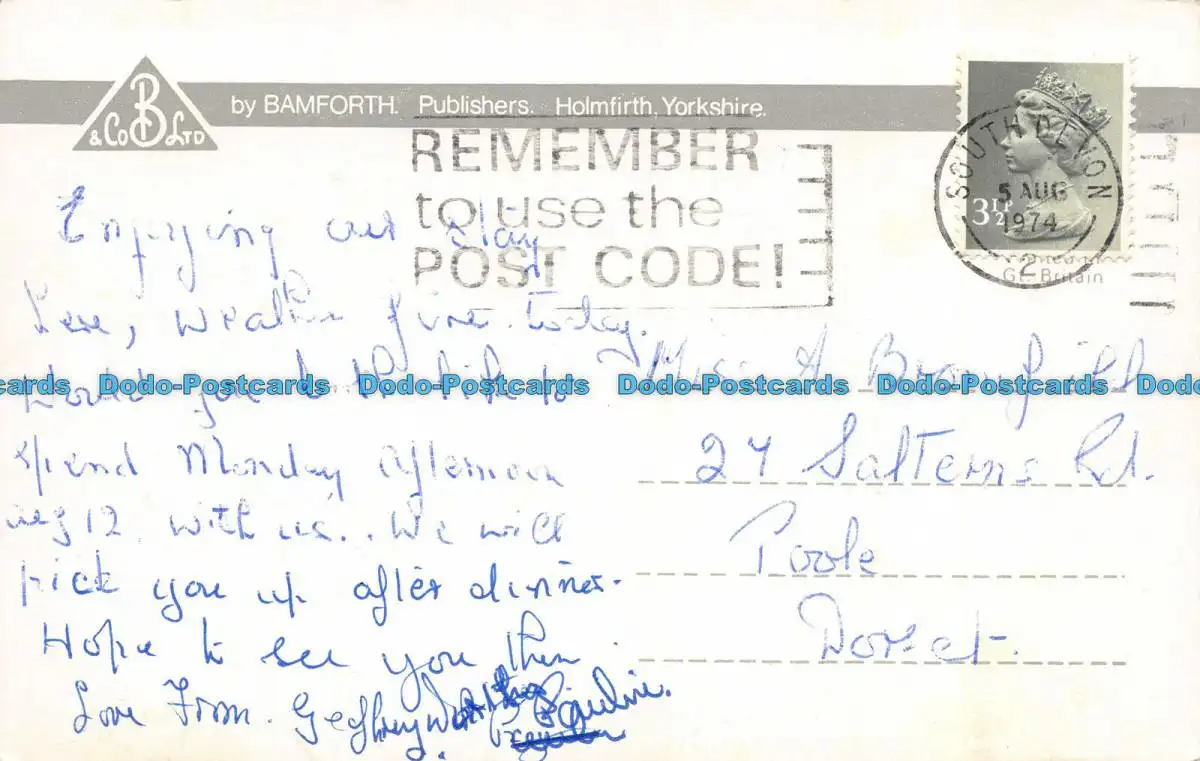 B
& Co LTD
by BAMFORTH. Publishers. Holmfirth, Yorkshire.
REMEMBER
to use the
POST CODE!
SOUTH DEVON
5 AUG
1974
2
3½P
Gt. Britain
Enjoying our stay
here, weather fine today.
Would you like to
spend Monday afternoon
Aug 12 with us.. We will
pick you up after dinner.
Hope to see you then
Love From. Geoffrey Pauline.
Miss A
27 Salterns Rd.
Poole
Dorset.
cards Dodo-Postcards Dodo-Postcards Dodo-Postcards Dodo-Postcards Dodo